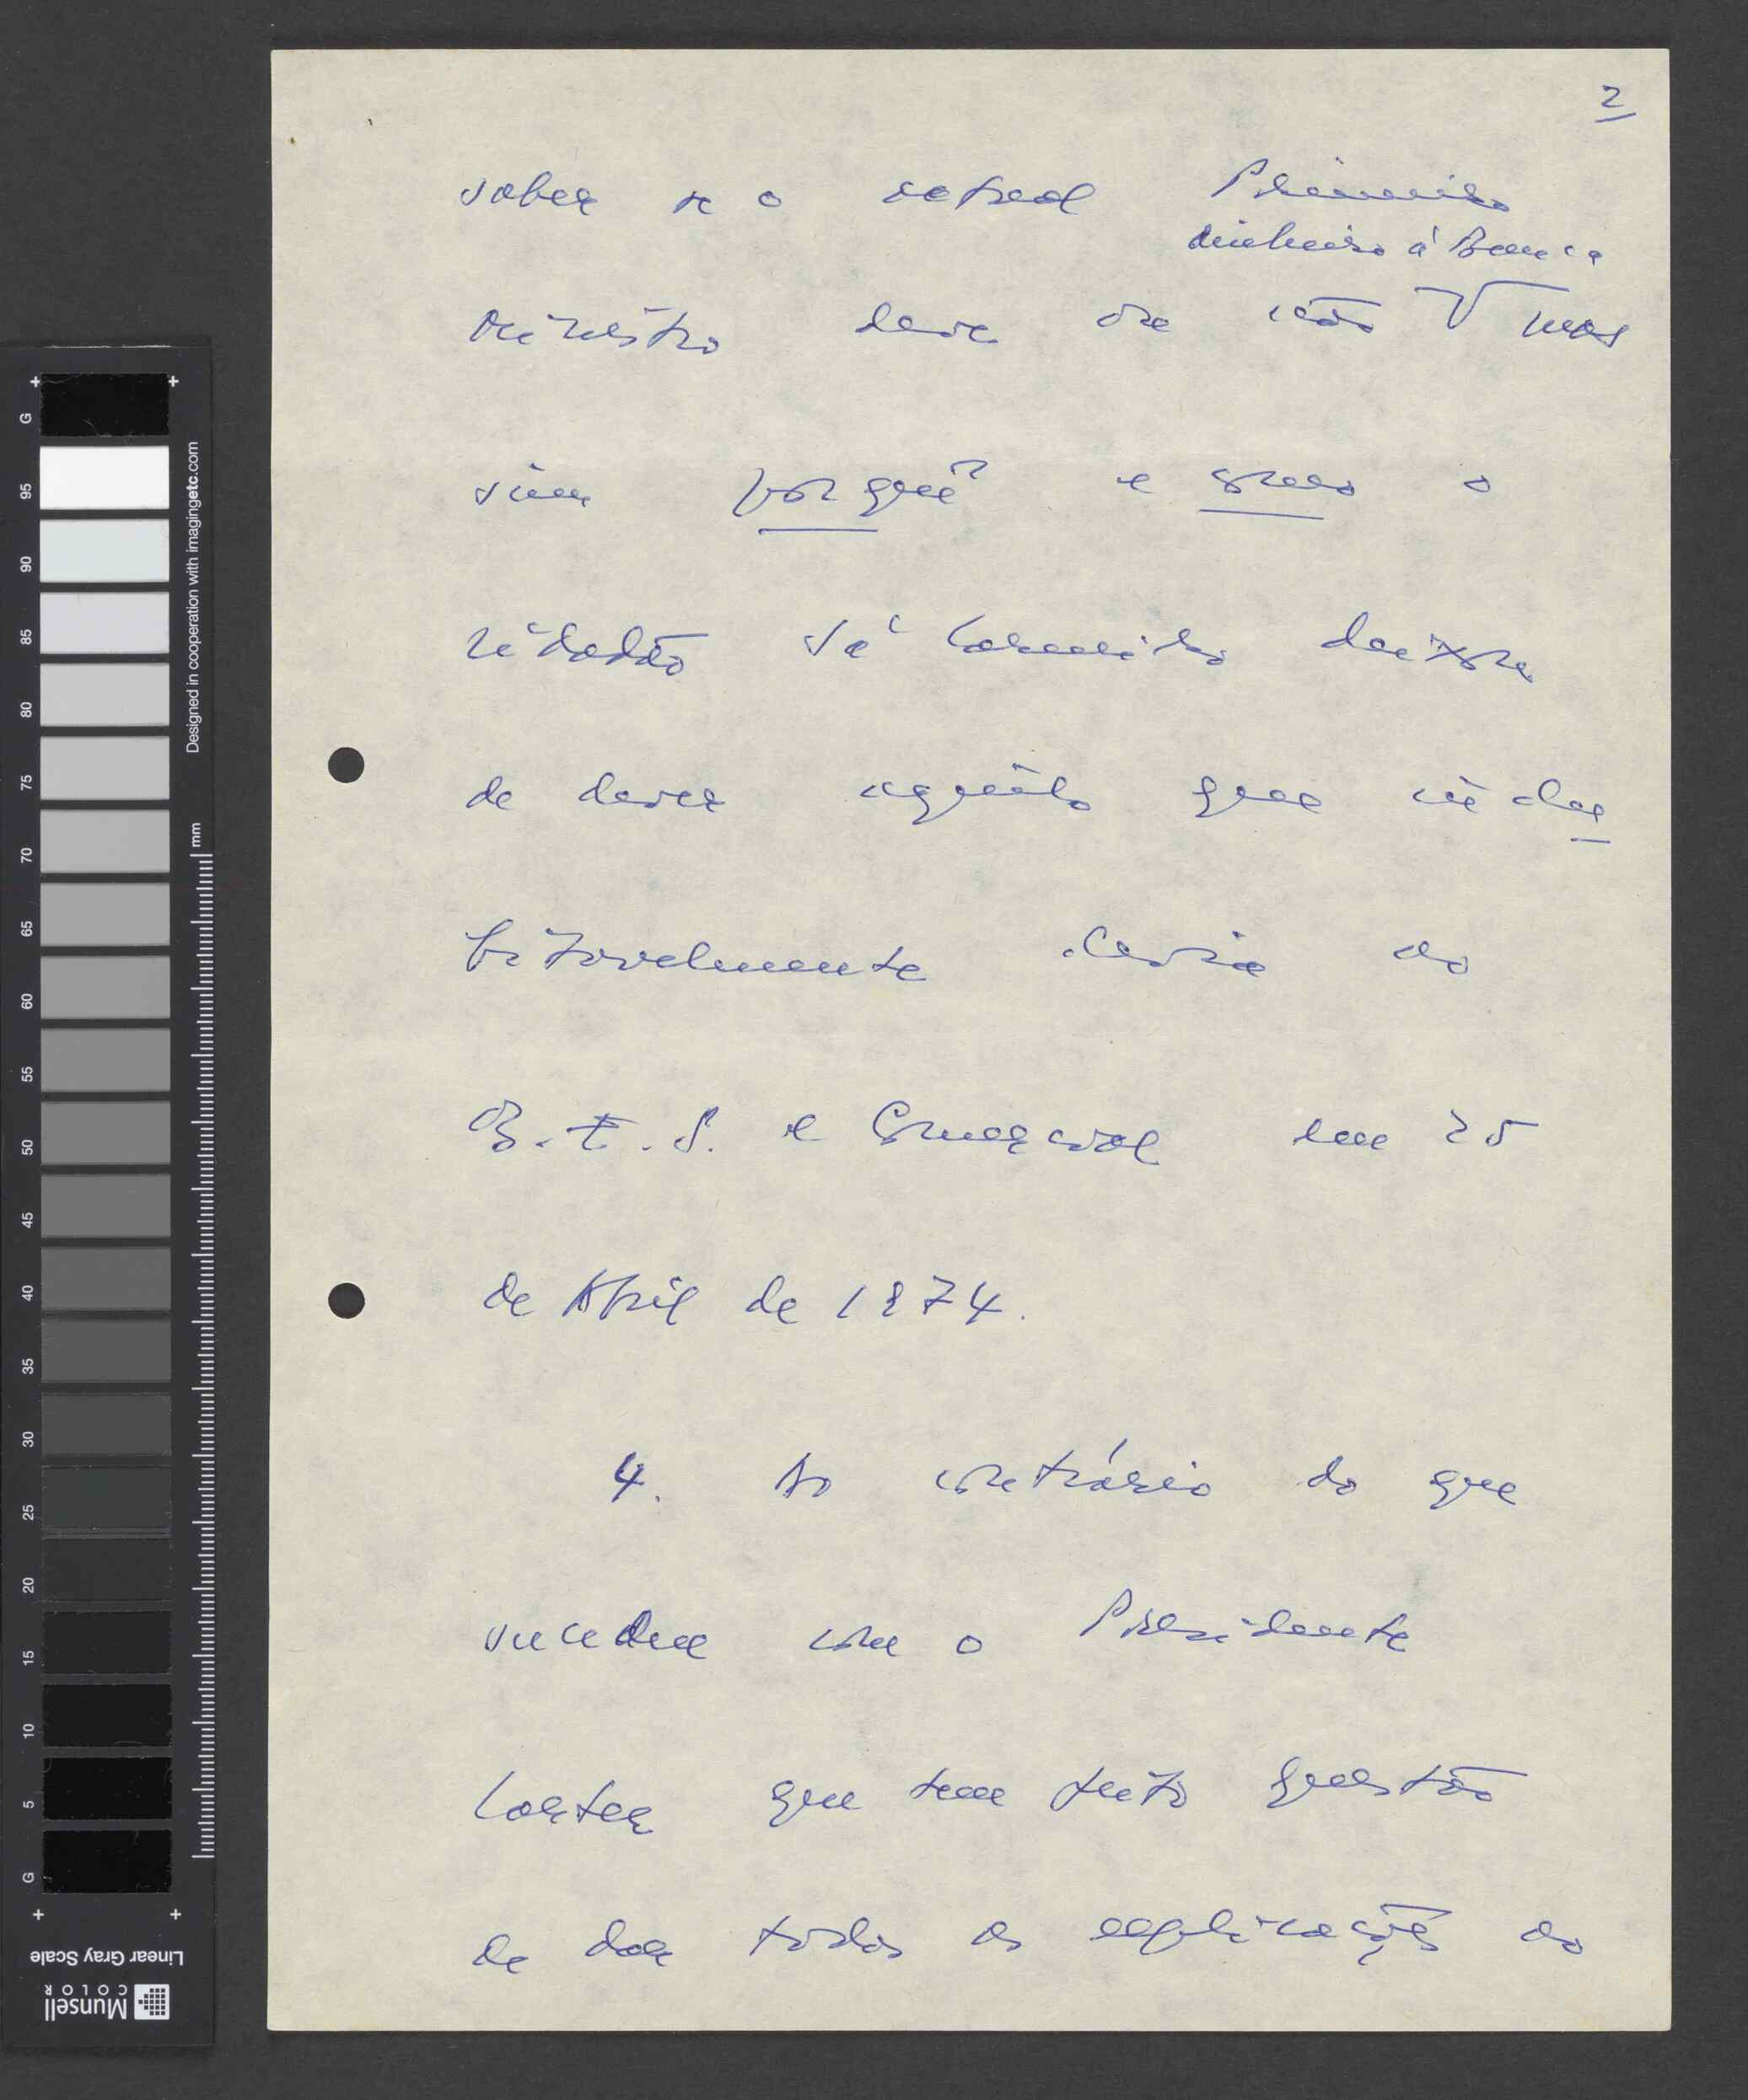 2
saber se o actual Primeiro
dinheiro à Banca
ministro deve ou não V mas
sim porquê e como o
cidadão Sá Carneiro deixou
de dever aquilo que indu
bitavelmente devia ao
B.E.S. e Comercial em 25
de Abril de 1974.
4. Ao contrário do que
sucedeu com o Presidente
Carter que tem feito questão
de dar todas as explicações ao
G 95 90 85 80 75 70 65 60 55 50 45 40 35 30 25 20 15 10 5 G
Designed in cooperation with imagingetc.com
mm
Linear Gray Scale
Munsell
COLOR